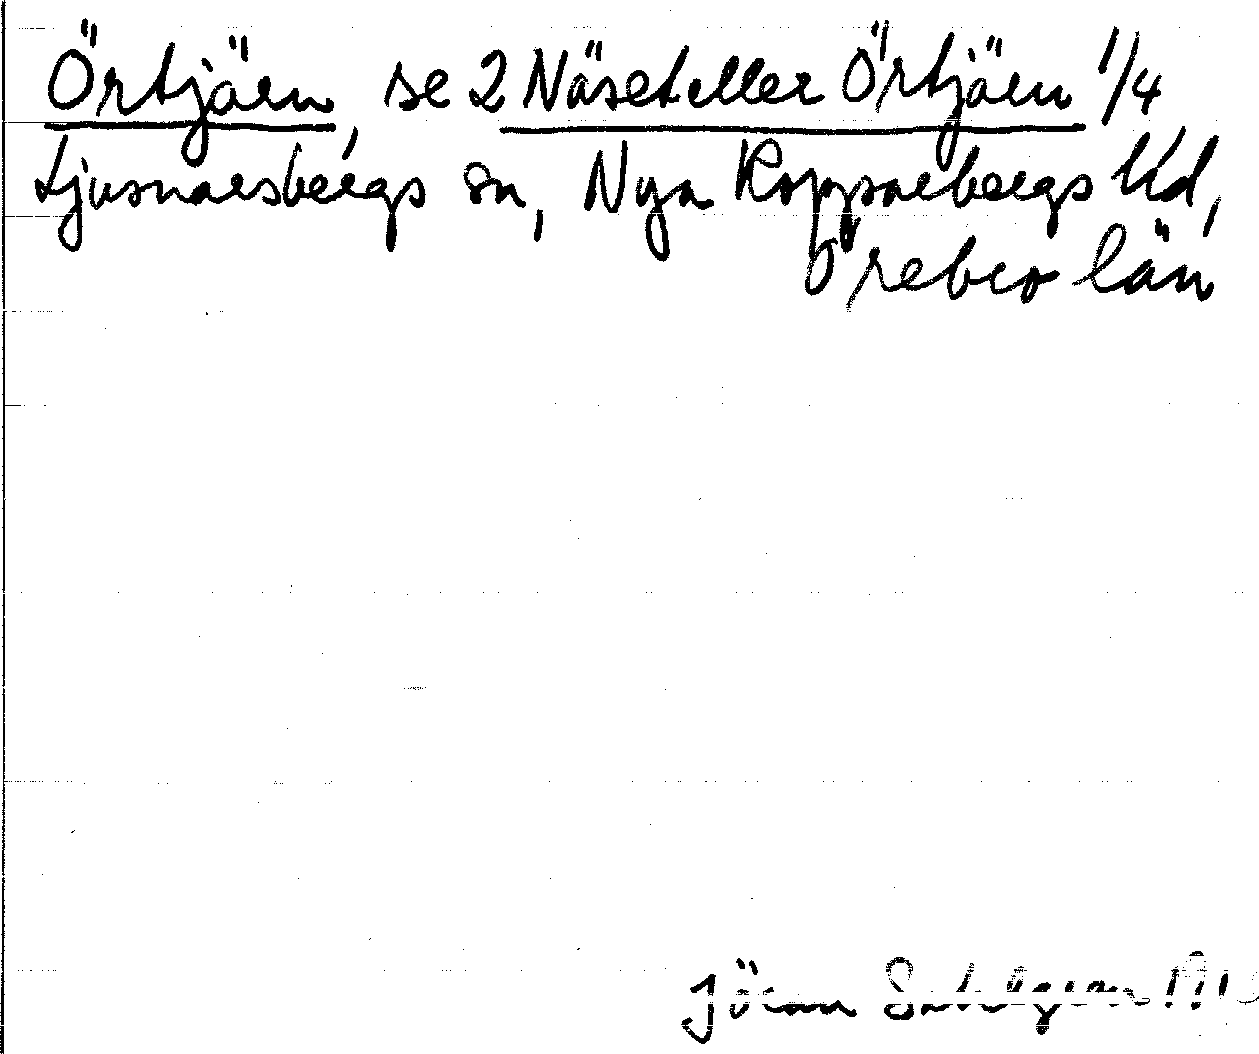 Örtjärn, se 2 Näset eller Örtjärn 1/4
Ljusnarsbergs sn, Nya Kopparbergs bd,
Örebro län
Jöran Sahlgren